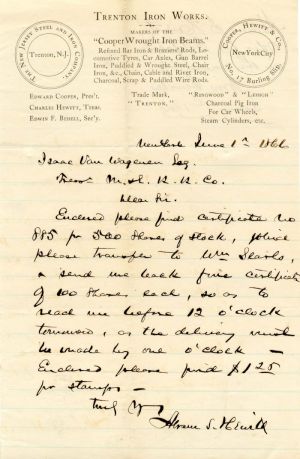 TRENTON IRON WORKS.
THE NEW JERSEY STEEL AND IRON COMPANY,
Trenton, N.J.
MAKERS OF THE
"Cooper Wrought Iron Beams."
Refined Bar Iron & Braziers' Rods, Lo-
comotive Tyres, Car Axles, Gun Barrel
Iron, Puddled & Wrought Steel, Chair
Iron, &c., Chain, Cable and Rivet Iron,
Charcoal, Scrap & Puddled Wire Rods.
COOPER, HEWITT & Co.
New York City
No. 17 Burling Slip.
EDWARD COOPER, Pres't.
CHARLES HEWITT, Treas.
EDWIN F. BEDELL, Sec'y.
Trade Mark,
"TRENTON,"
"RINGWOOD" & "LEHIGH"
Charcoal Pig Iron
For Car Wheels,
Steam Cylinders, etc.
New York June 1st
Isaac Van Wagenen Esq.
Treas. M. & E. R. R. Co.
Dear Sir.
Enclosed please find certificate No
885 for 500 shares of stock,
please transfer to Wm
& send me back five certificates
of 100 shares each, so as to
reach me before 12 o'clock
tomorrow, as the delivery must
be made by one o'clock —
Enclosed please find $1.25
for stamps —
Truly Yrs
Abram S. Hewitt